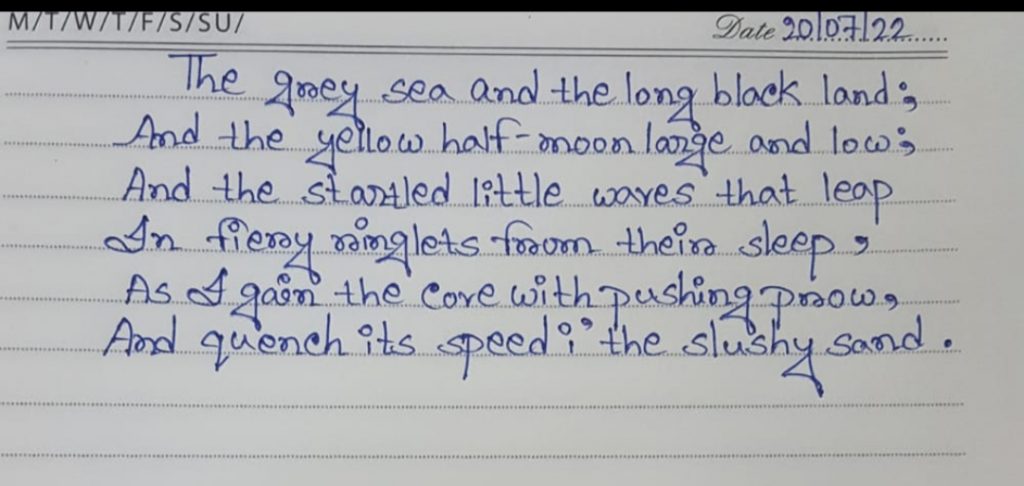 M/T/W/T/F/S/SU/
Date 20/07/22......
The grey sea and the long black land;
And the yellow half-moon large and low;
And the startled little waves that leap
In fiery ringlets from their sleep,
As I gain the cove with pushing prow,
And quench its speed i' the slushy sand.